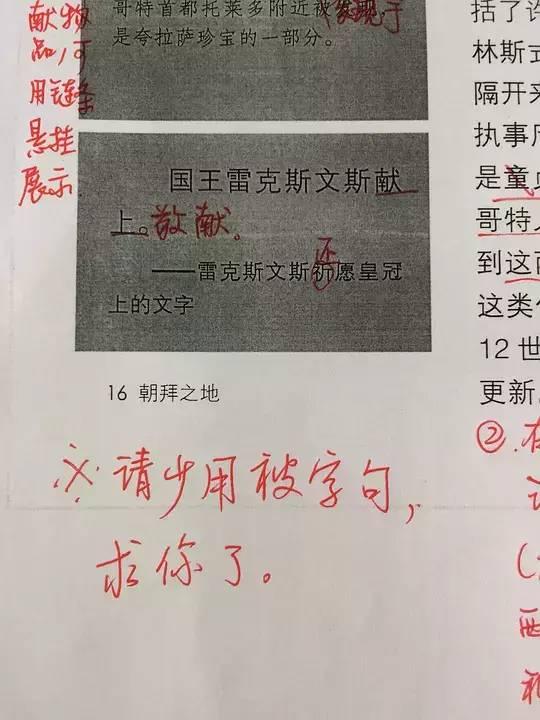 献物
品,可
用链条
悬挂
展示.
哥特首都托莱多附近被发现于
是夸拉萨珍宝的一部分。
国王雷克斯文斯献
上。敬献。
还
——雷克斯文斯祈愿皇冠
上的文字
16 朝拜之地
※请少用被字句,
求你了。
括了
林斯式
隔开来
执事
是童贞
哥特人
到这
这类
12世
更新。
②.